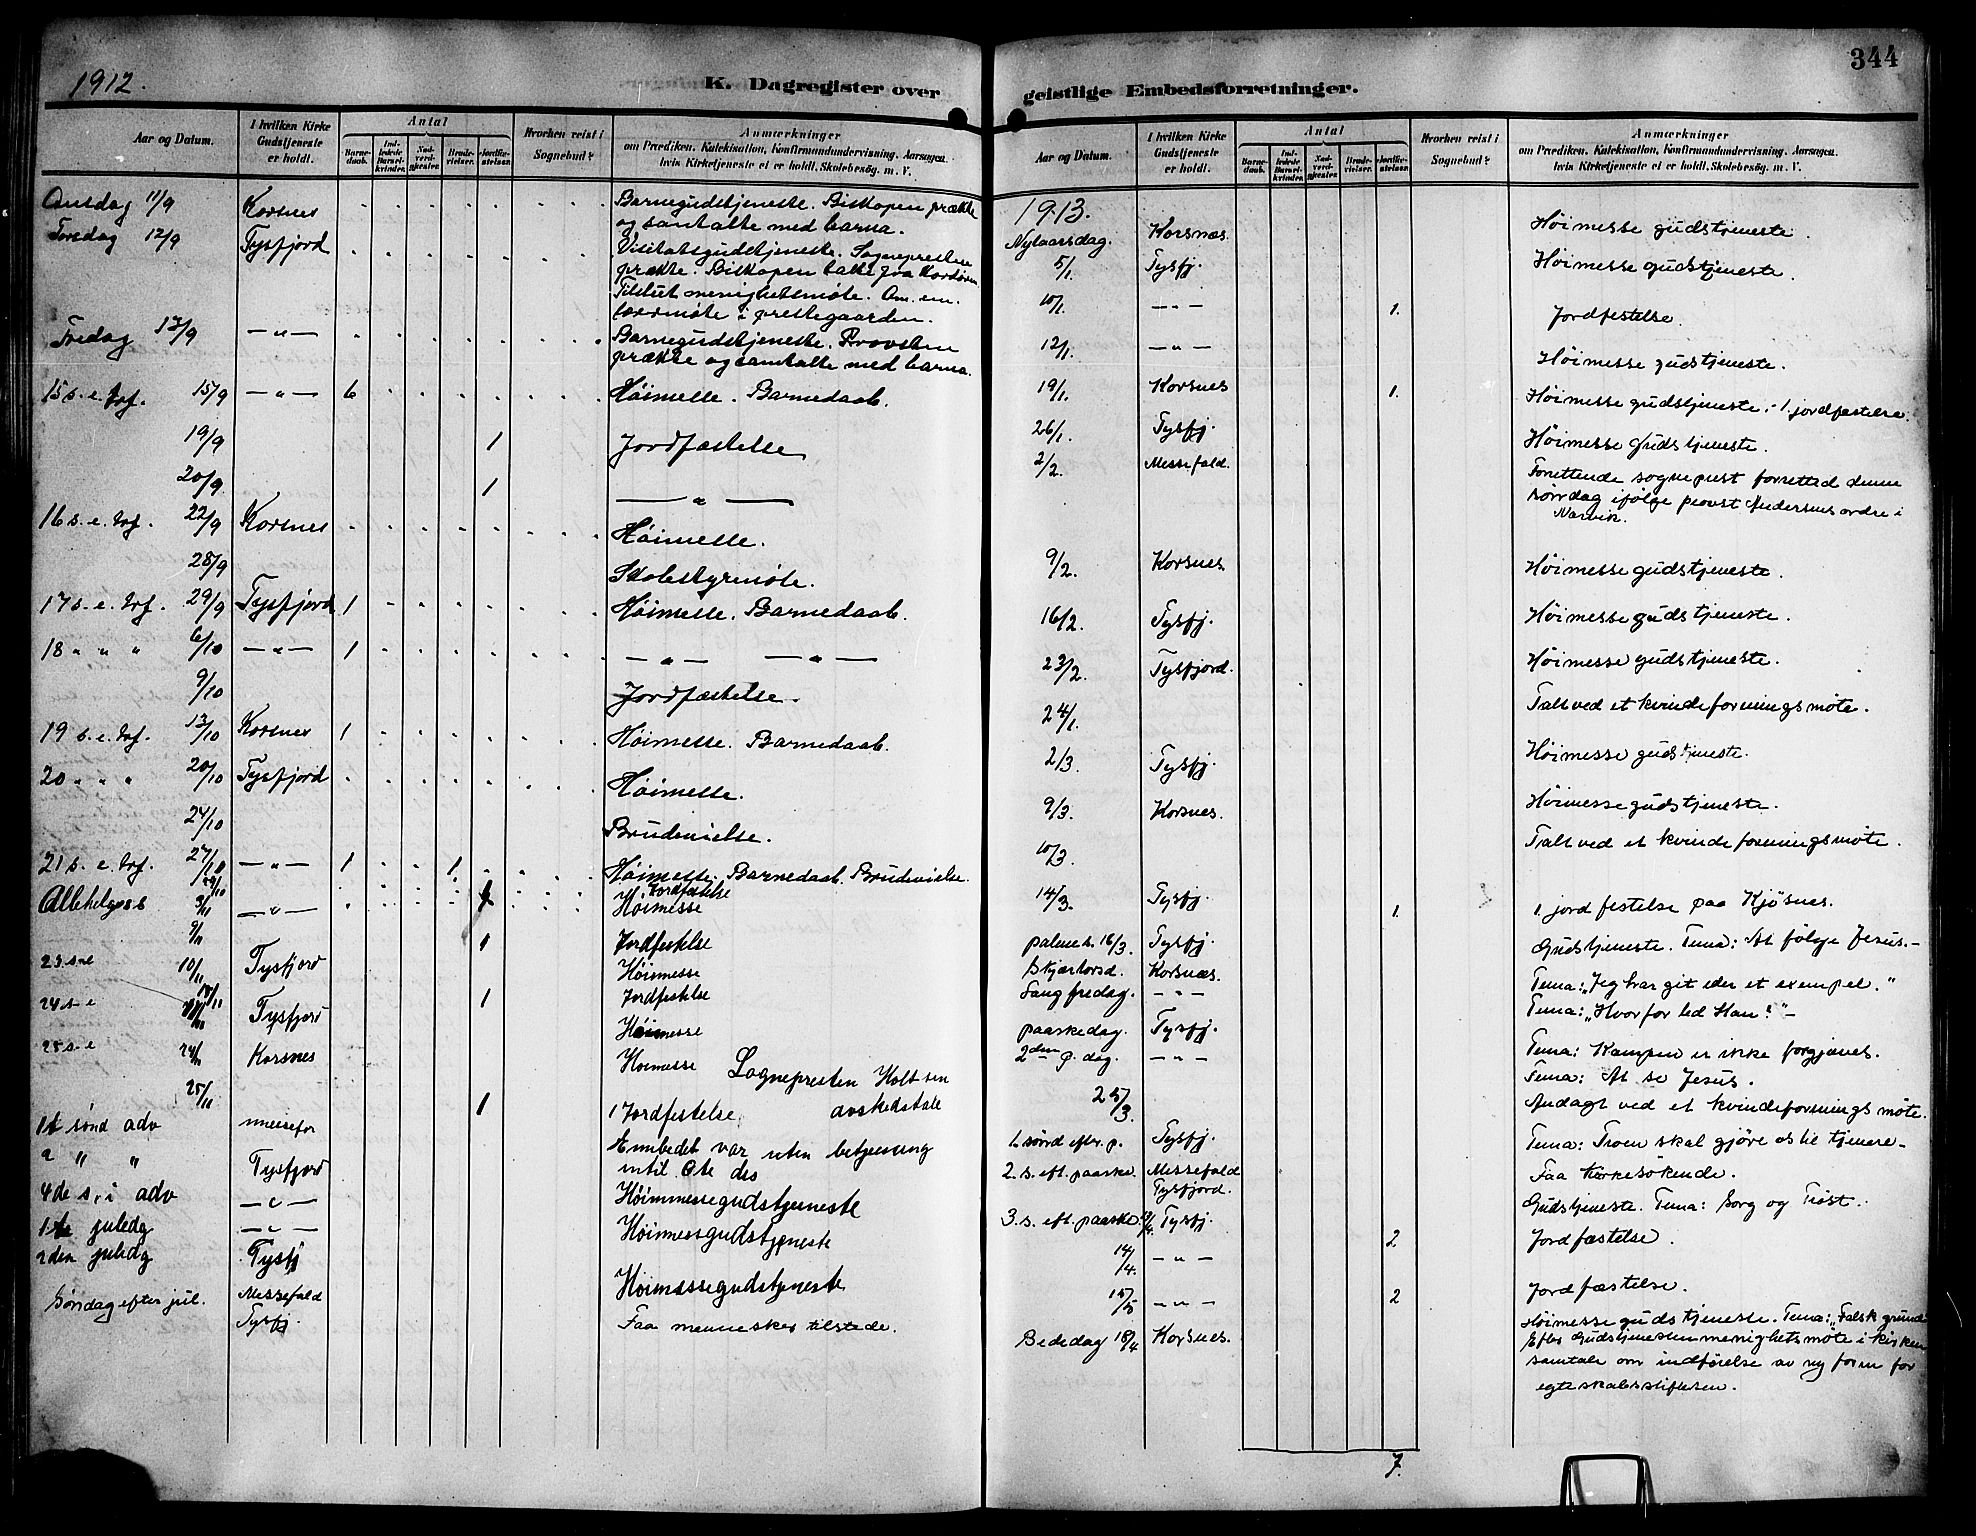 344
1912.
K. Dagregister over
Aar og Datum.
I hvilken Kirke Gudstjeneste er holdt.
Antal
Barne-daab.
Ind-ledede Barsel-kvinder.
Nad-verd-gjester.
Brude-vielser.
Jordfæ-stelser.
Hvorhen reist i Sognebud?
Anmærkninger
om Prædiken, Katekisation, Konfirmandundervisning, Aarsagen,
hvis Kirketjeneste ei er holdt, Skolebesøg, m. V.
Onsdag 11/9 Korsnes Barnegudstjeneste. Biskopen prækte
og samtalte med barna.
Torsdag 12/9 Tysfjord Visitatsgudstjeneste. Sognepresten
prækte. Biskopen talte fra Kordøren
Tilslut menighetsmøte. Om em.
i prestegaarden.
Fredag 13/9 — " — Barnegudstjeneste. Provsten
prækte og samtalte med barna.
15 s. e. tref. 15/9 — " — 6 Høimesse. Barnedaab.
19/9 1 Jordfæstelse
20/9 1 — " —
16 s. e. tref. 22/9 Korsnes Høimesse.
28/9 Skolestyremøte.
17 s. e. tref. 29/9 Tysfjord 1 Høimesse. Barnedaab.
18 " " " 6/10 — " — 1 — " — — " —
9/10 Jordfæstelse.
19 s. e. tref. 13/10 Korsnes 1 Høimesse. Barnedaab.
20 " " " 20/10 Tysfjord Høimesse.
24/10 Brudevielse.
21 s. e. tref. 27/10 — " — 1 1 Høimesse. Barnedaab. Brudevielse.
Jordfæstelse
Allehelgess 3/11 — " — Høimesse
9/11 1 Jordfestelse
23 s e 10/11 Tysfjord Høimesse
1 Jordfestelse
24 s e Tysfjord Høimesse
25 s e 24/11 Korsnes Høimesse Sognepresten Holtsen
avskedstale
25/11 1 1 Jordfestelse
1st sønd adv messefor Embedet var uten betjening
2 " " Tysfjord intil 8te des
4de s. i adv — " — Høimmessegudstjeneste
1ste juledg — " — Høimessgudstjeneste
2den juledg Tysfj Høimessegudstjeneste
Søndag efter jul. Messefald
Tysfj. Faa mennesker tilstede.
geistlige Embedsforretninger.
Aar og Datum.
I hvilken Kirke Gudstjeneste er holdt.
Antal
Barne-daab.
Ind-ledede Barsel-kvinder.
Nad-verd-gjester.
Brude-vielser.
Jordfæ-stelser.
Hvorhen reist i Sognebud?
Anmærkninger
om Prædiken, Katekisation, Konfirmandundervisning, Aarsagen,
hvis Kirketjeneste ei er holdt, Skolebesøg, m. V.
1913.
Nytaarsdag. Korsnæs. Høimesse gudstjeneste.
5/1. Tysfj. Høimesse gudstjeneste.
10/1. — " — 1. Jordfestelse.
12/1. — " — Høimesse gudstjeneste.
19/1. Korsnes 1. Høimesse gudstjeneste. - 1. jordfæstelse.
26/1. Tysfj. Høimesse gudstjeneste.
2/2. Messefald. Forrettende sogneprest forretted denne
søndag ifølge provst Andersens ordre i
Narvik.
9/2. Korsnes Høimesse gudstjeneste.
16/2. Tysfj. Høimesse gudstjeneste.
23/2. Tysfjord. Høimesse gudstjeneste.
24/1. Talt ved et kvindeforningsmøte.
2/3. Tysfj. Høimesse gudstjeneste.
9/3. Korsnes. Høimesse gudstjeneste.
10/3. Talt ved et kvindeforningsmøte.
14/3. Tysfj. 1. 1. jordfestelse paa Kjøsnes.
palmes. 16/3. Tysfj. Gudstjeneste. Tema: At følge Jesus. -
Skjærtorsd. Korsnæs. Tema: "Jeg har git eder et exempel."
Langfredag. — " — Tema: "Hvorfor led Han?" -
paaskedag. Tysfj. Tema: Kampen er ikke forgjæves.
2den p. dag. — " — Tema: At se Jesus.
25/3. Andagt ved et kvindeforningsmøte.
1. sønd efter. p. Tysfj. Tema: Troen skal gjøre os til tjenere -
2. s. eft. paaske Messefald Faa kirkesökende.
Tysfjord.
3. s. eft. paaske Tysfj. Gudstjeneste. Tema: Sorg og Trøst.
14/4. — " — 2 Jordfæstelse.
15/5 — " — 2 Jordfæstelse.
Bededag 18/4 Korsnes. Høimesse gudstjeneste. Tema: "Falsk grund
Efter Gudstjenesten menighetsmøte i kirken
samtale om indførelse av ny form for
egteskabsstiftelsen.
7.